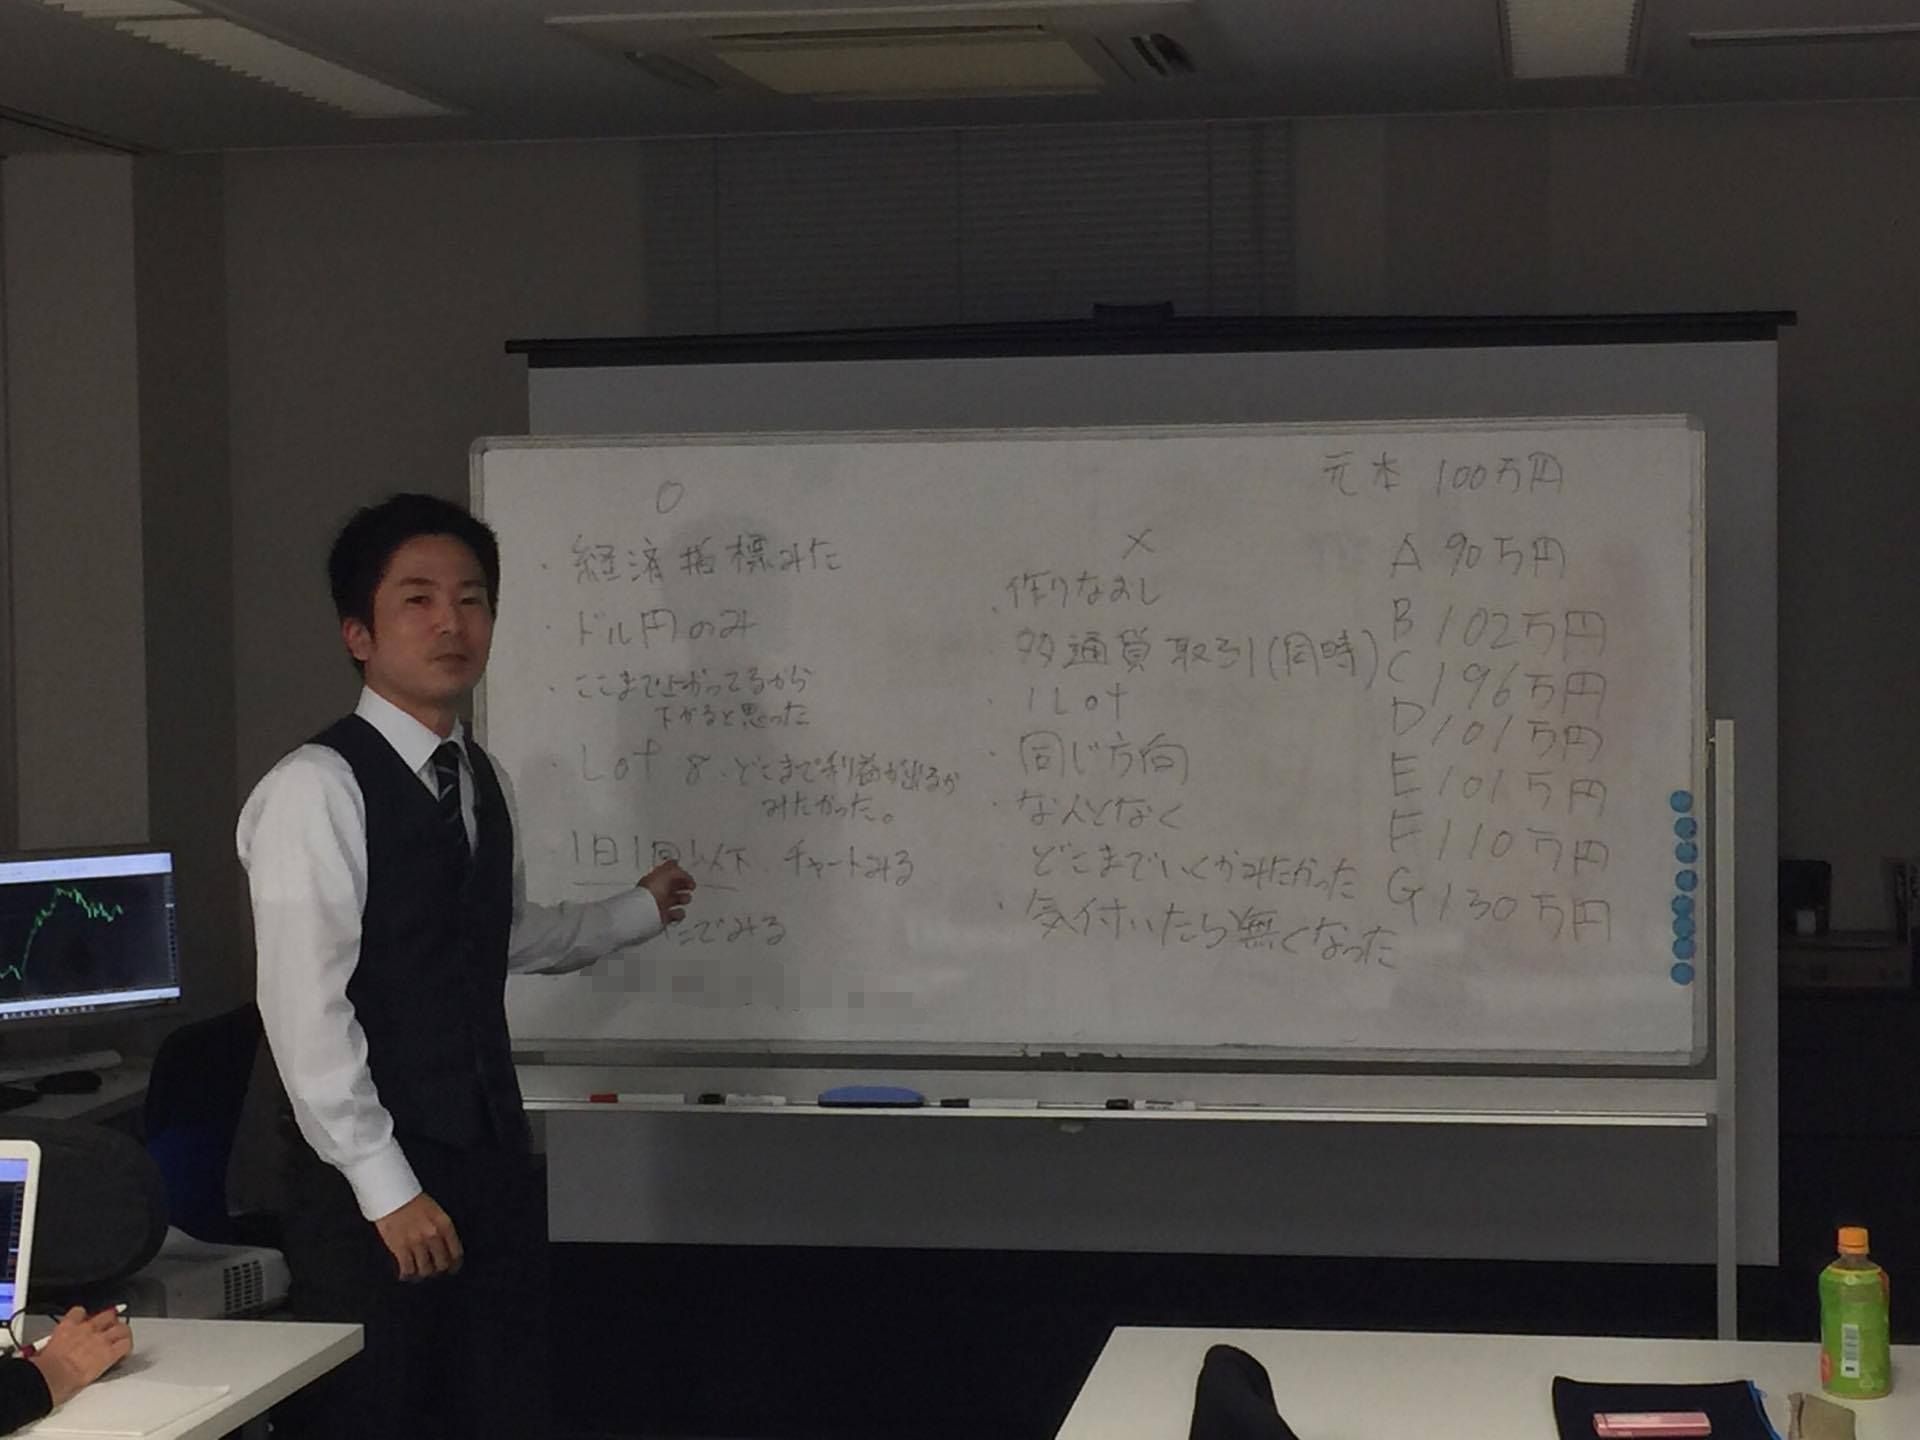 ○
・経済指標みた
・ドル円のみ
・ここまで上がってるから
下がると思った
・Lot 8、どこまで利益が出るか
みたかった。
・1日1回以下、チャートみる
でみる
×
・作りなおし
多通貨取引(同時)
・1Lot
・同じ方向
・なんとなく
どこまでいくかみたかった
・気付いたら無くなった
元本 100万円
A 90万円
B 102万円
C 196万円
D 101万円
E 101万円
F 110万円
G 130万円